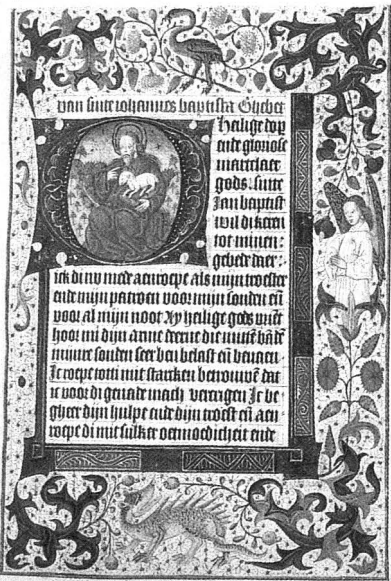 van sinte iohannes baptista Ghebet
O heilige dop
ende gloriose
martelaer
gods. sinte
Jan baptist
wil di keren
tot minen
gebede daer
ick di ny mede aenroepe als mijn troester
ende mijn patroen voor mijn sonden eñ
voor al mijn noot heilige gods
hoor mi dijn arme die
sonden seer ben belast eñ
Ic roepe tot mit starcken betrouwē dat
ic voor di genade mach vercrigen Ic be
gheer dijn hulpe ende dijn troest eñ aen
roepe di mit sulker oetmoedicheit ende